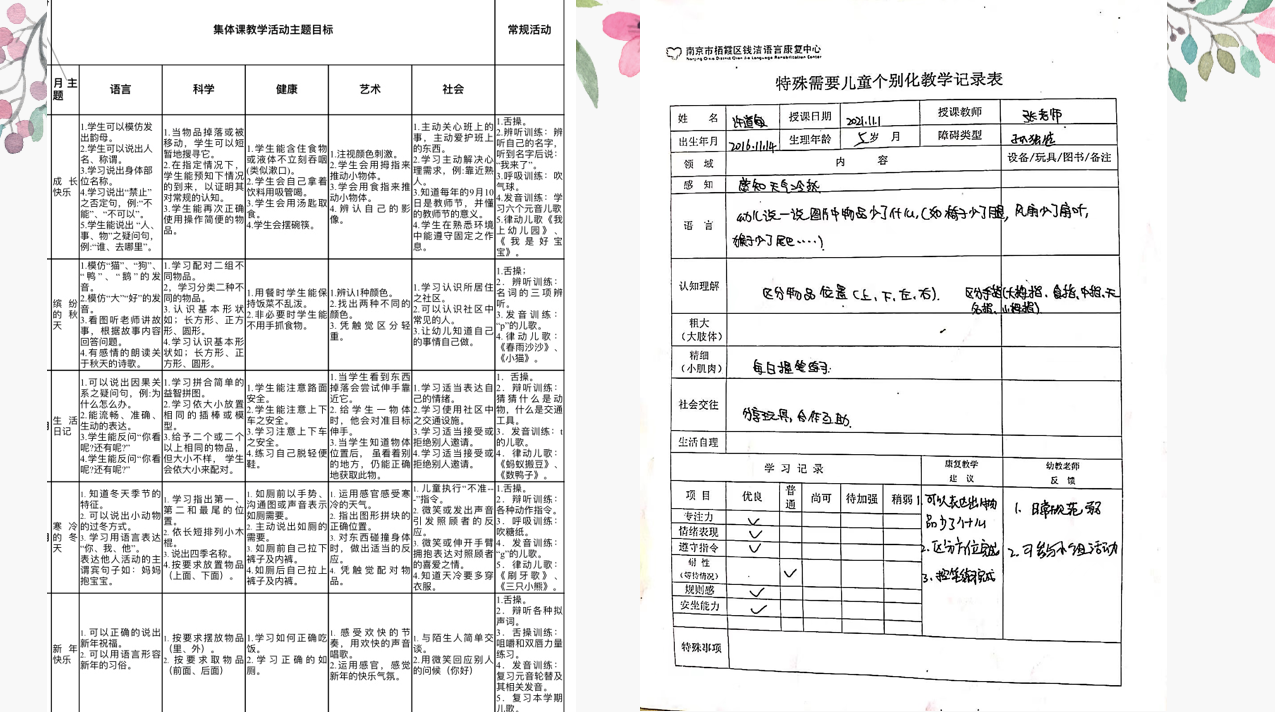 集体课教学活动主题目标
常规活动
月 主
题
语言
科学
健康
艺术
社会
成 长
快乐
1.学生可以模仿发
出韵母。
2.学生可以说出人
名、称谓。
3.学习说出身体部
位名称。
4.学习说出“禁止”
之否定句，例:“不
能”、“不可以”。
5.学生能说出 “人、
事、物”之疑问句，
例:“谁、去哪里”。
1.当物品掉落或被
移动，学生可以短
暂地搜寻它。
2.在指定情况下，
学生能预知下情况
的到来，以证明其
对常规的认知。
3.学生能再次正确
使用操作简便的物
品。
1.学生能含住食物
或液体不立刻吞咽
(类似漱口)。
2.学生会自己拿着
饮料用吸管喝。
3.学生会用汤匙取
食。
4.学生会摆碗筷。
1.注视颜色刺激。
2.学生会用拇指来
推动小物体。
3.学会用食指来推
动小物体。
4.辨认自己的影
像。
1.主动关心班上的
事，主动爱护班上
的东西。
2.学习主动解决心
理需求，例:靠近熟
人。
3.知道每年的9月10
日是教师节，并懂
的教师节的意义。
4.学生在熟悉环境
中能遵守固定之作
息。
1.舌操。
2.辨听训练：辨
听自己的名字，
听到名字后说：
“我来了”。
3.呼吸训练：吹
气球。
4.发音训练：学
习六个元音儿歌
5.律动儿歌《我
上幼儿园》、
《我是好宝
宝》。
缤 纷
的 秋
天
1.模仿“猫”、“狗”、
“鸭”、“鹅”的发
音。
2.模仿“大”“好”的发
音。
3.看图听老师讲故
事，根据故事内容
回答问题。
4.有感情的朗读关
于秋天的诗歌。
1.学习配对二组不
同物品。
2，学习分类二种不
同的物品。
3.认识基本形状
如；长方形、正方
形、圆形。
4.学习认识基本形
状如；长方形、正
方形、圆形。
1.用餐时学生能保
持饭菜不乱泼。
2.非必要时学生能
不用手抓食物。
1.辨认1种颜色。
2.找出两种不同的
颜色。
3.凭触觉区分轻
重。
1.学习认识所居住
之社区。
2.可以认识社区中
常见的人。
3.让幼儿知道自己
的事情自己做。
1.舌操；
2．辨听训练：
名词的三项辨
听。
3.发音训练：
“p”的儿歌。
4.律动儿歌：
《春雨沙沙》、
《小猫》。
生 活
日记
1.可以说出因果关
系之疑问句，例:为
什么怎么办。
2.能流畅、准确、
生动的表达。
3.学生能反问“你看
呢?还有呢?”
4.学生能反问“你看
呢?还有呢?”
1.学习拼合简单的
益智拼图。
2.学习依大小放置
相同的插棒或模
型。
3.给予二个或二个
以上相同的物品，
但大小不样， 学生
会依大小来配对。
1.学生能注意路面
安全。
2.学生能注意上下
车之安全。
3.学习注意上下车
之安全。
4.练习自己脱轻便
鞋。
1.当学生看到东西
掉落会尝试伸手靠
近它。
2.给学生一物体
时，他会对准目标
伸手。
3.当学生知道物体
位置后， 虽看着别
的地方，仍能正确
地获取此物。
1.学习适当表达自
己的情绪。
2.学习使用社区中
之交通设施。
3.学习适当接受或
拒绝别人邀请。
4.学习适当接受或
拒绝别人邀请。
1．舌操。
2．辩听训练：
猜猜什么是动
物，什么是交通
工具。
3．发音训练：t
的儿歌。
4．律动儿歌：
《蚂蚁搬豆》、
《数鸭子》。
寒 冷
的 冬
天
1. 知道冬天季节的
特征。
2. 可以说出小动物
的过冬方式。
3. 学习用语言表达
“你、我、他”。
表达他人活动的主
谓宾句子如：妈妈
抱宝宝。
1. 学习指出第一、
第二和最尾的位
置。
2. 依长短排列小木
棍。
3. 说出四季名称。
4.按要求放置物品
（上面、下面）。
1. 如厕前以手势、
沟通图或声音表示
如厕需要。
2. 主动说出如厕的
需要。
3. 如厕前自己拉下
裤子及内裤。
4.如厕后自己拉上
裤子及内裤。
1. 运用感官感受寒
冷的天气。
2. 指出图形拼块的
正确位置。
3. 对东西碰撞身体
时，做出适当的反
应。
4. 凭触觉配对物
品。
1.儿童执行“不准--
-”指令。
2. 微笑或发出声音
引发照顾者的反
应。
3. 微笑或伸开手臂
拥抱表达对照顾者
的喜爱之情。
4.知道天冷要多穿
衣服。
1.舌操。
2．辩听训练：
各种动作指令。
3．呼吸训练：
吹糖纸。
4．发音训练：
“g”的儿歌。
5．律动儿歌：
《刷牙歌》、
《三只小熊》。
新 年
快乐
1. 可以正确的说出
新年祝福。
2. 可以用语言形容
新年的习俗。
1.按要求摆放物品
（里、外）。
2.按要求取物品
（前面、后面）
1.学习如何正确吃
饭。
2.学习正确的如
厕。
1. 感受欢快的节
奏，用欢快的声音
唱歌。
2.运用感官，感觉
新年的快乐气氛。
1. 与陌生人简单交
谈。
2.用微笑回应别人
的问候（你好）
1.舌操。
2．辩听各种拟
声词。
3．舌操训练：
咀嚼和双唇力量
练习。
4．发音训练：
复习元音轮替及
其相关发音。
5．复习本学期
儿歌。
南京市栖霞区钱洁语言康复中心
Nanjing Qixia District Qian Jie Language Rehabilitation Center
特殊需要儿童个别化教学记录表
姓 名
授课日期 2021.11.1
授课教师 张老师
出生年月 2016.11.14
生理年龄 5岁 月
障碍类型 孤独症
领 域
内 容
设备/玩具/图书/备注
感 知 感知天气冷热
语 言 幼儿说一说图片中物品少了什么,(如椅子少了腿,风扇少了扇叶,
猴子少了尾巴……)
认知理解 区分物品位置(上、下、左、右). 区分手指(大拇指、食指、中指、无
名指、小拇指)
粗大
（大肢体）
精细
（小肌肉）
每日握笔练习
社会交往 分享玩具,合作互助.
生活自理
学 习 记 录
康复教学
建 议
幼教老师
反 馈
项 目 优良 普通 尚可 待加强 稍弱
专注力 ✓
情绪表现 ✓
遵守指令 ✓
耐 性
（等待情况） ✓
规则感 ✓
安坐能力 ✓
特殊事项
1.可以表达出物
品少了什么
2.区分方位
3.握笔练习
1. 日常规范
2.可参与小组活动